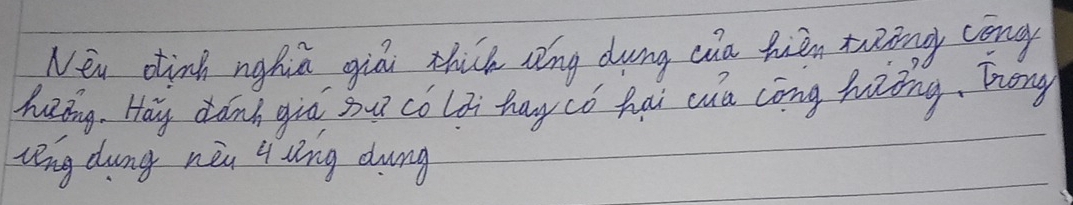 Nêu định nghĩa giải thích ứng dụng của hiện tượng cộng
hưởng. Hãy đánh giá sự có lợi hay có hại của cộng hưởng. Trong
ứng dụng nêu 4 ứng dụng